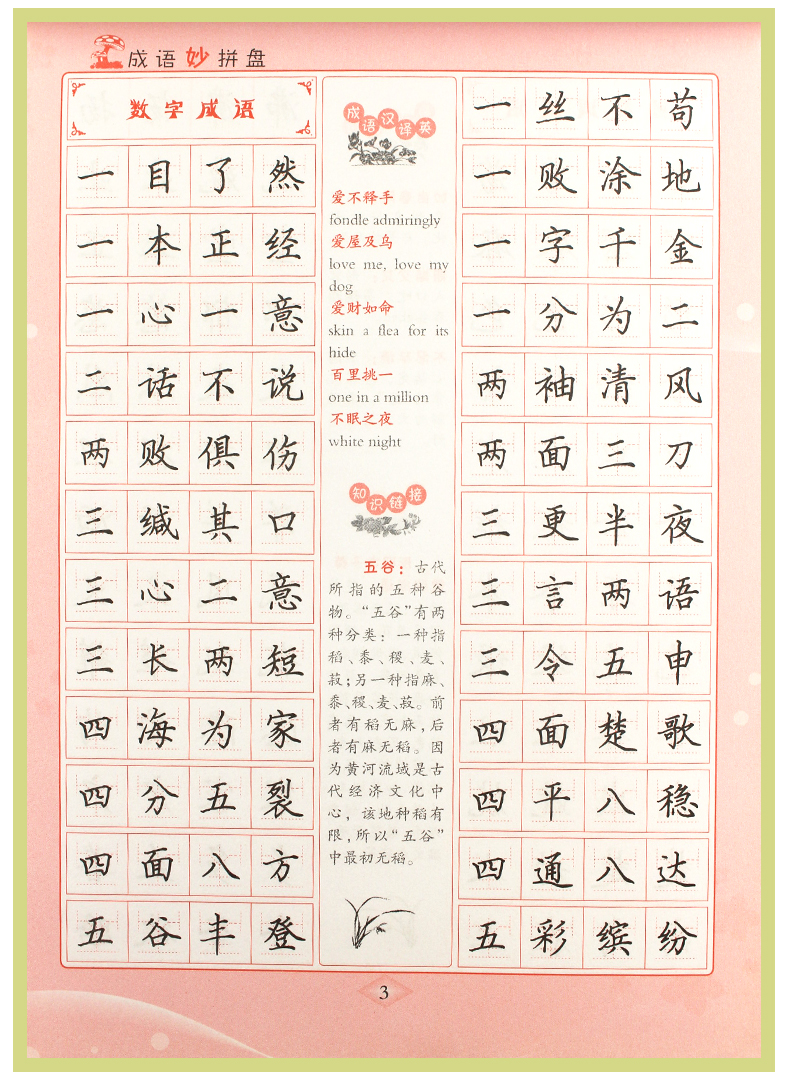 成语妙拼盘
数字成语
一目了然
一本正经
一心一意
二话不说
两败俱伤
三缄其口
三心二意
三长两短
四海为家
四分五裂
四面八方
五谷丰登
成语汉译英
爱不释手
fondle admiringly
爱屋及乌
love me, love my
dog
爱财如命
skin a flea for its
hide
百里挑一
one in a million
不眠之夜
white night
知识链接
五谷：古代
所指的五种谷
物。“五谷”有两
种分类：一种指
稻、黍、稷、麦、
菽；另一种指麻、
黍、稷、麦、菽。前
者有稻无麻，后
者有麻无稻。因
为黄河流域是古
代经济文化中
心，该地种稻有
限，所以“五谷”
中最初无稻。
一丝不苟
一败涂地
一字千金
一分为二
两袖清风
两面三刀
三更半夜
三言两语
三令五申
四面楚歌
四平八稳
四通八达
五彩缤纷
3